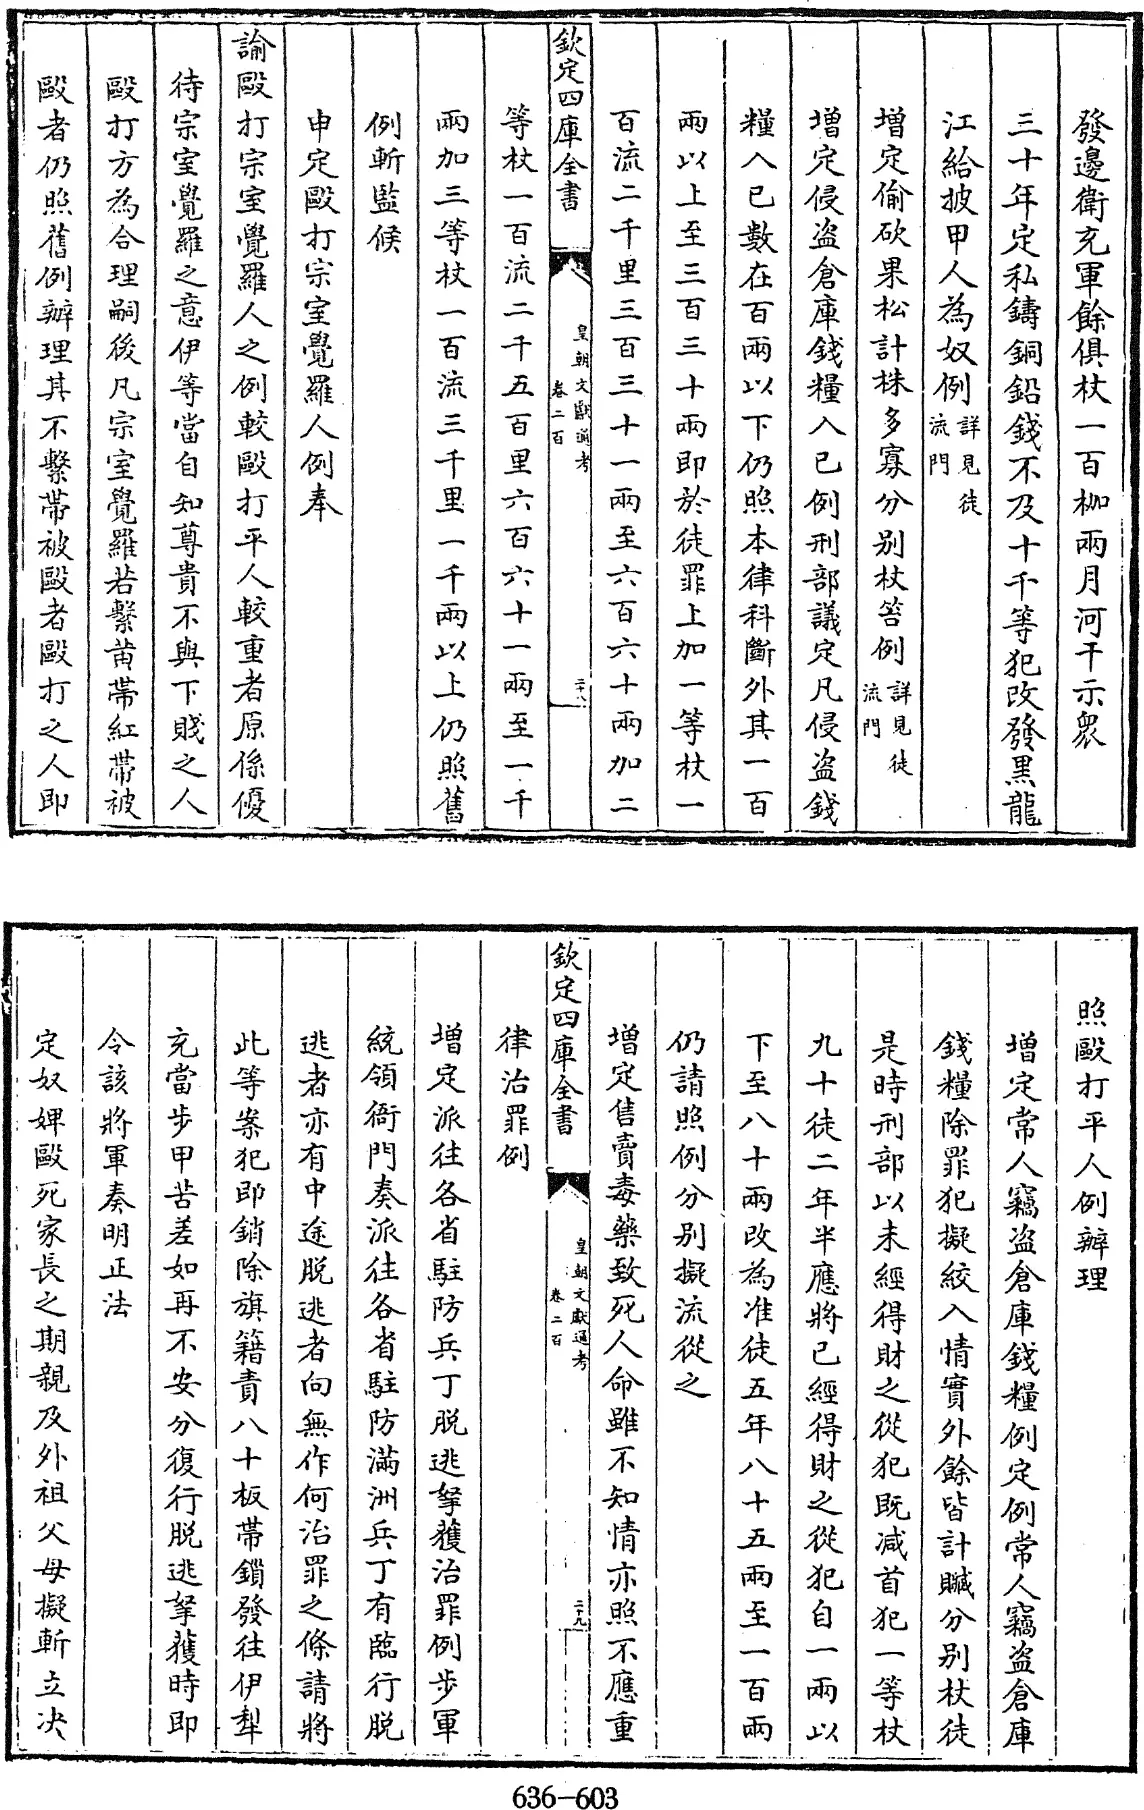 發邊衛充軍餘俱杖一百枷兩月河干示衆
三十年定私鑄銅鉛錢不及十千等犯改發黑龍
江給披甲人為奴例詳見徒流門
增定偷砍果松計株多寡分别杖笞例詳見徒流門
增定侵盗倉庫錢糧入已例刑部議定凡侵盗錢
糧入已數在百兩以下仍照本律科斷外其一百
兩以上至三百三十兩即於徒罪上加一等杖一
百流二千里三百三十一兩至六百六十兩加二
欽定四庫全書
皇朝文獻通考
卷二百
二十八
等杖一百流二千五百里六百六十一兩至一千
兩加三等杖一百流三千里一千兩以上仍照舊
例斬監候
申定毆打宗室覺羅人例奉
諭毆打宗室覺羅人之例較毆打平人較重者原係優
待宗室覺羅之意伊等當自知尊貴不與下賤之人
毆打方為合理嗣後凡宗室覺羅若繫黄帶紅帶被
毆者仍照舊例辦理其不繫帶被毆者毆打之人即
照毆打平人例辦理
增定常人竊盗倉庫錢糧例定例常人竊盗倉庫
錢糧除罪犯擬絞入情實外餘皆計贓分别杖徒
是時刑部以未經得財之從犯既减首犯一等杖
九十徒二年半應將已經得財之從犯自一兩以
下至八十兩改為准徒五年八十五兩至一百兩
仍請照例分别擬流從之
增定售賣毒藥致死人命雖不知情亦照不應重
欽定四庫全書
皇朝文獻通考
卷二百
二十九
律治罪例
增定派往各省駐防兵丁脱逃拏獲治罪例步軍
統領衙門奏派往各省駐防滿洲兵丁有臨行脱
逃者亦有中途脱逃者向無作何治罪之條請將
此等案犯即銷除旗籍責八十板帶鎖發往伊犁
充當步甲苦差如再不安分復行脱逃拏獲時即
令該將軍奏明正法
定奴婢毆死家長之期親及外祖父母擬斬立决
636-603